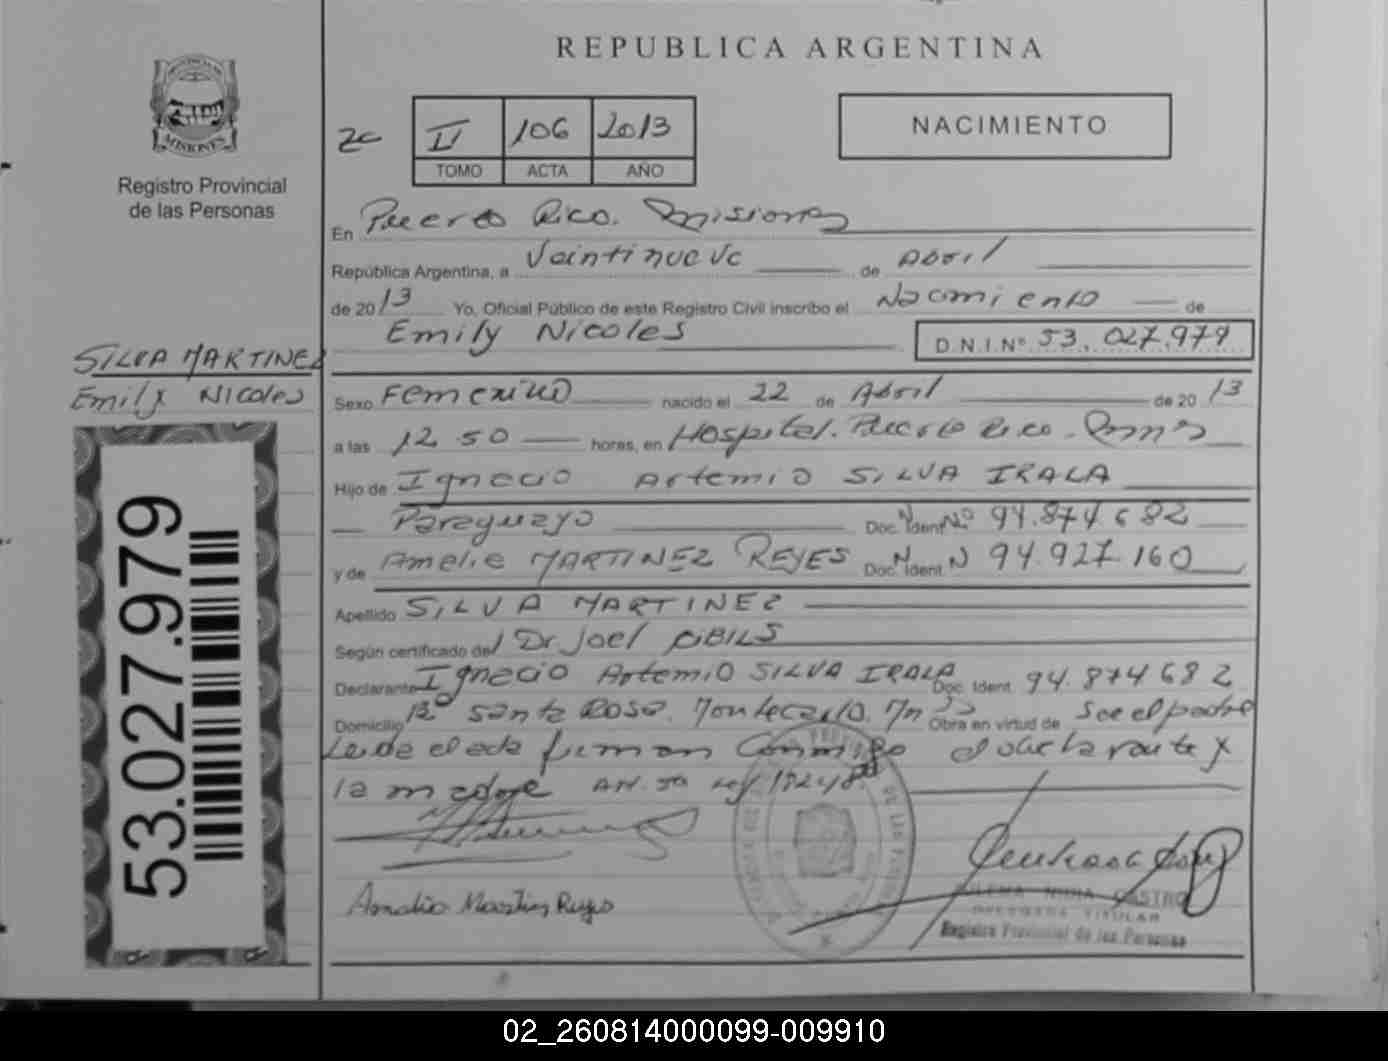 REPUBLICA ARGENTINA
MISIONES
Registro Provincial
de las Personas
II 106 2013
TOMO ACTA AÑO
NACIMIENTO
En Puerto Rico. Misiones
República Argentina, a Veintinueve de Abril
de 2013 Yo, Oficial Público de este Registro Civil inscribo el Nacimiento de
Emily Nicoles D.N.I.Nº 53.027.979
SILVA MARTINEZ
Emily Nicoles
Sexo Femenino nacido el 22 de Abril de 2013
a las 12 50 horas, en Hospital. Puerto Rico.
Hijo de Ignacio Artemio SILVA IRALA
Paraguayo Doc. Ident Nº 94.874.682
y de Amelie MARTINEZ REYES Doc. Ident. N 94.927.160
Apellido SILVA MARTINEZ
Según certificado del Dr. Joel
Declarante Ignacio Artemio SILVA IRALA Doc. Ident. 94.874682
Domicilio Santa Rosa. Montecarlo. Obra en virtud de ser el padre
Leida el acta firman Conmigo el declarante y
la madre
53.027.979
Amalia Martinez Reyes
CASTRO
TITULAR
Registro Provincial de las Personas
02_260814000099-009910